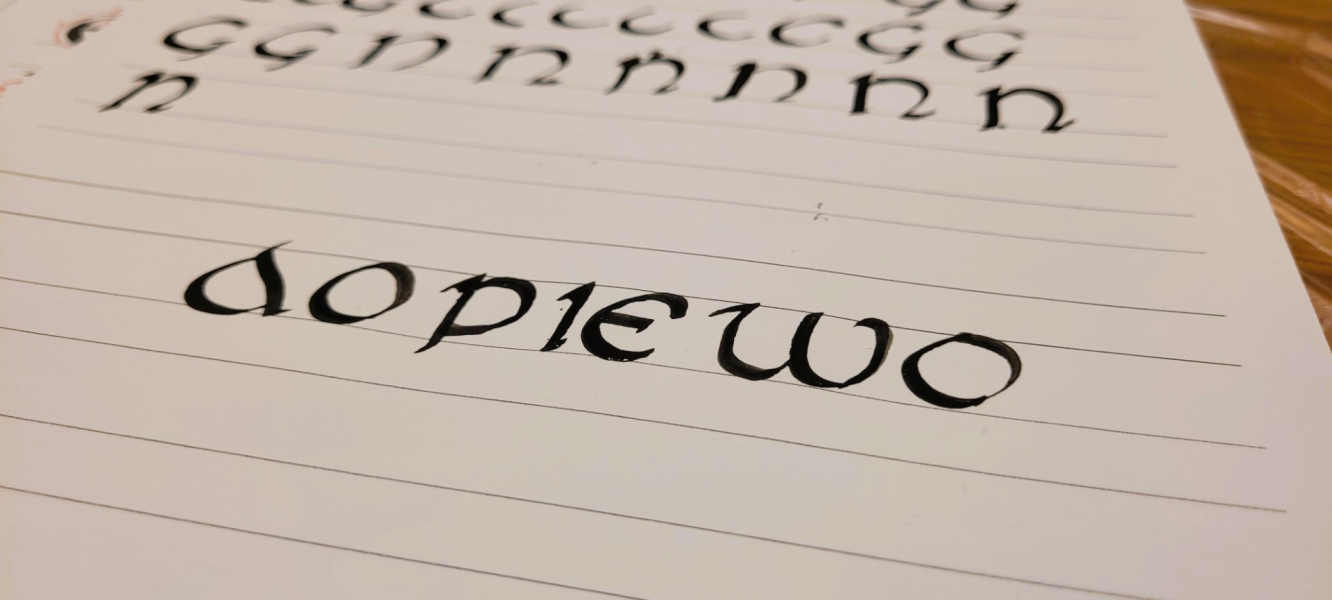 G G n n n n n n
n
dopiewo